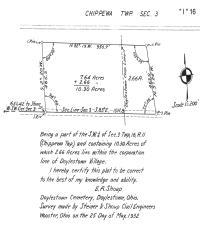 CHIPPEWA TWP SEC. 3
"I" 16
7.64 Acres
+ 2.66 "
10.30 Acres
2.66 A.
Scale 1:200'
Being a part of the S.W.¼ of Sec. 3 Twp. 18, R. 11
(Chippewa Twp.) and containing 10.30 Acres of
which 2.66 Acres lies within the corporation
line of Doylestown Village.
I hereby certify this plat to be correct
to the best of my knowledge and ability.
E.R. Shoup
Doylestown Cemetery, Doylestown, Ohio.
Survey made by Steiner & Shoup Civil Engineers
Wooster, Ohio on the 25 Day of May, 1932